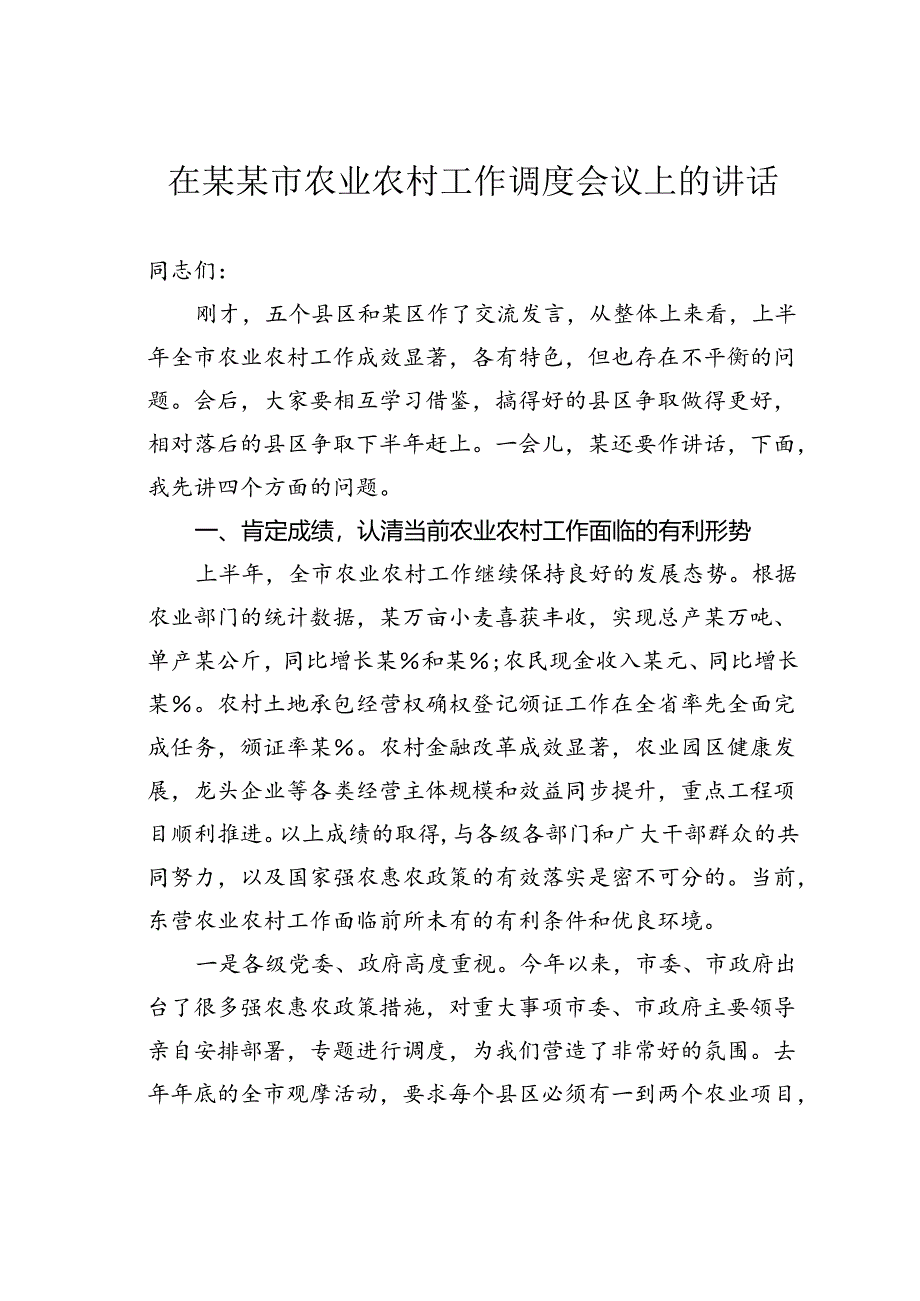 在某某市农业农村工作调度会议上的讲话
同志们：
刚才，五个县区和某区作了交流发言，从整体上来看，上半
年全市农业农村工作成效显著，各有特色，但也存在不平衡的问
题。会后，大家要相互学习借鉴，搞得好的县区争取做得更好，
相对落后的县区争取下半年赶上。一会儿，某还要作讲话，下面，
我先讲四个方面的问题。
一、肯定成绩，认清当前农业农村工作面临的有利形势
上半年，全市农业农村工作继续保持良好的发展态势。根据
农业部门的统计数据，某万亩小麦喜获丰收，实现总产某万吨、
单产某公斤，同比增长某%和某%；农民现金收入某元、同比增长
某%。农村土地承包经营权确权登记颁证工作在全省率先全面完
成任务，颁证率某%。农村金融改革成效显著，农业园区健康发
展，龙头企业等各类经营主体规模和效益同步提升，重点工程项
目顺利推进。以上成绩的取得，与各级各部门和广大干部群众的共
同努力，以及国家强农惠农政策的有效落实是密不可分的。当前，
东营农业农村工作面临前所未有的有利条件和优良环境。
一是各级党委、政府高度重视。今年以来，市委、市政府出
台了很多强农惠农政策措施，对重大事项市委、市政府主要领导
亲自安排部署，专题进行调度，为我们营造了非常好的氛围。去
年年底的全市观摩活动，要求每个县区必须有一到两个农业项目，